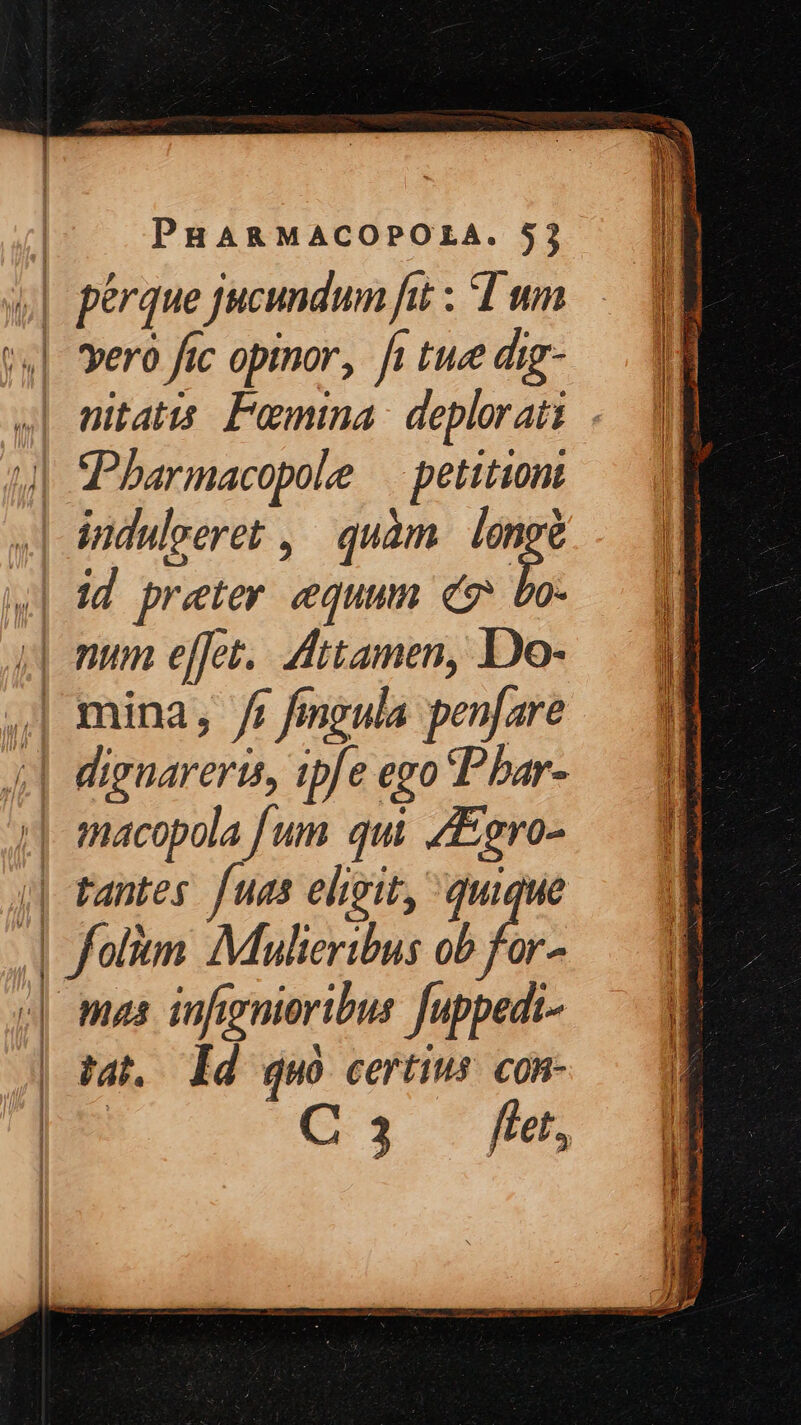 PHARMACOPOLA. 53
pérque jucundum ſit : Tum
verò ſic opinor, ſi tuæ dig-
nitatis Fœmina deplorati
Pharmacopolæ petitioni
indulgeret, quàm longè
id præter æquum & bo-
num eſſet. Attamen, Do-
mina, ſi ſingula penſare
dignareris, ipſe ego Phar-
macopola ſum qui Ægro-
tantes ſuas eligit, quique
ſolùm Mulieribus ob for-
mas inſignioribus ſuppedi-
tat. Id quò certius con-
C 3 ſtet,